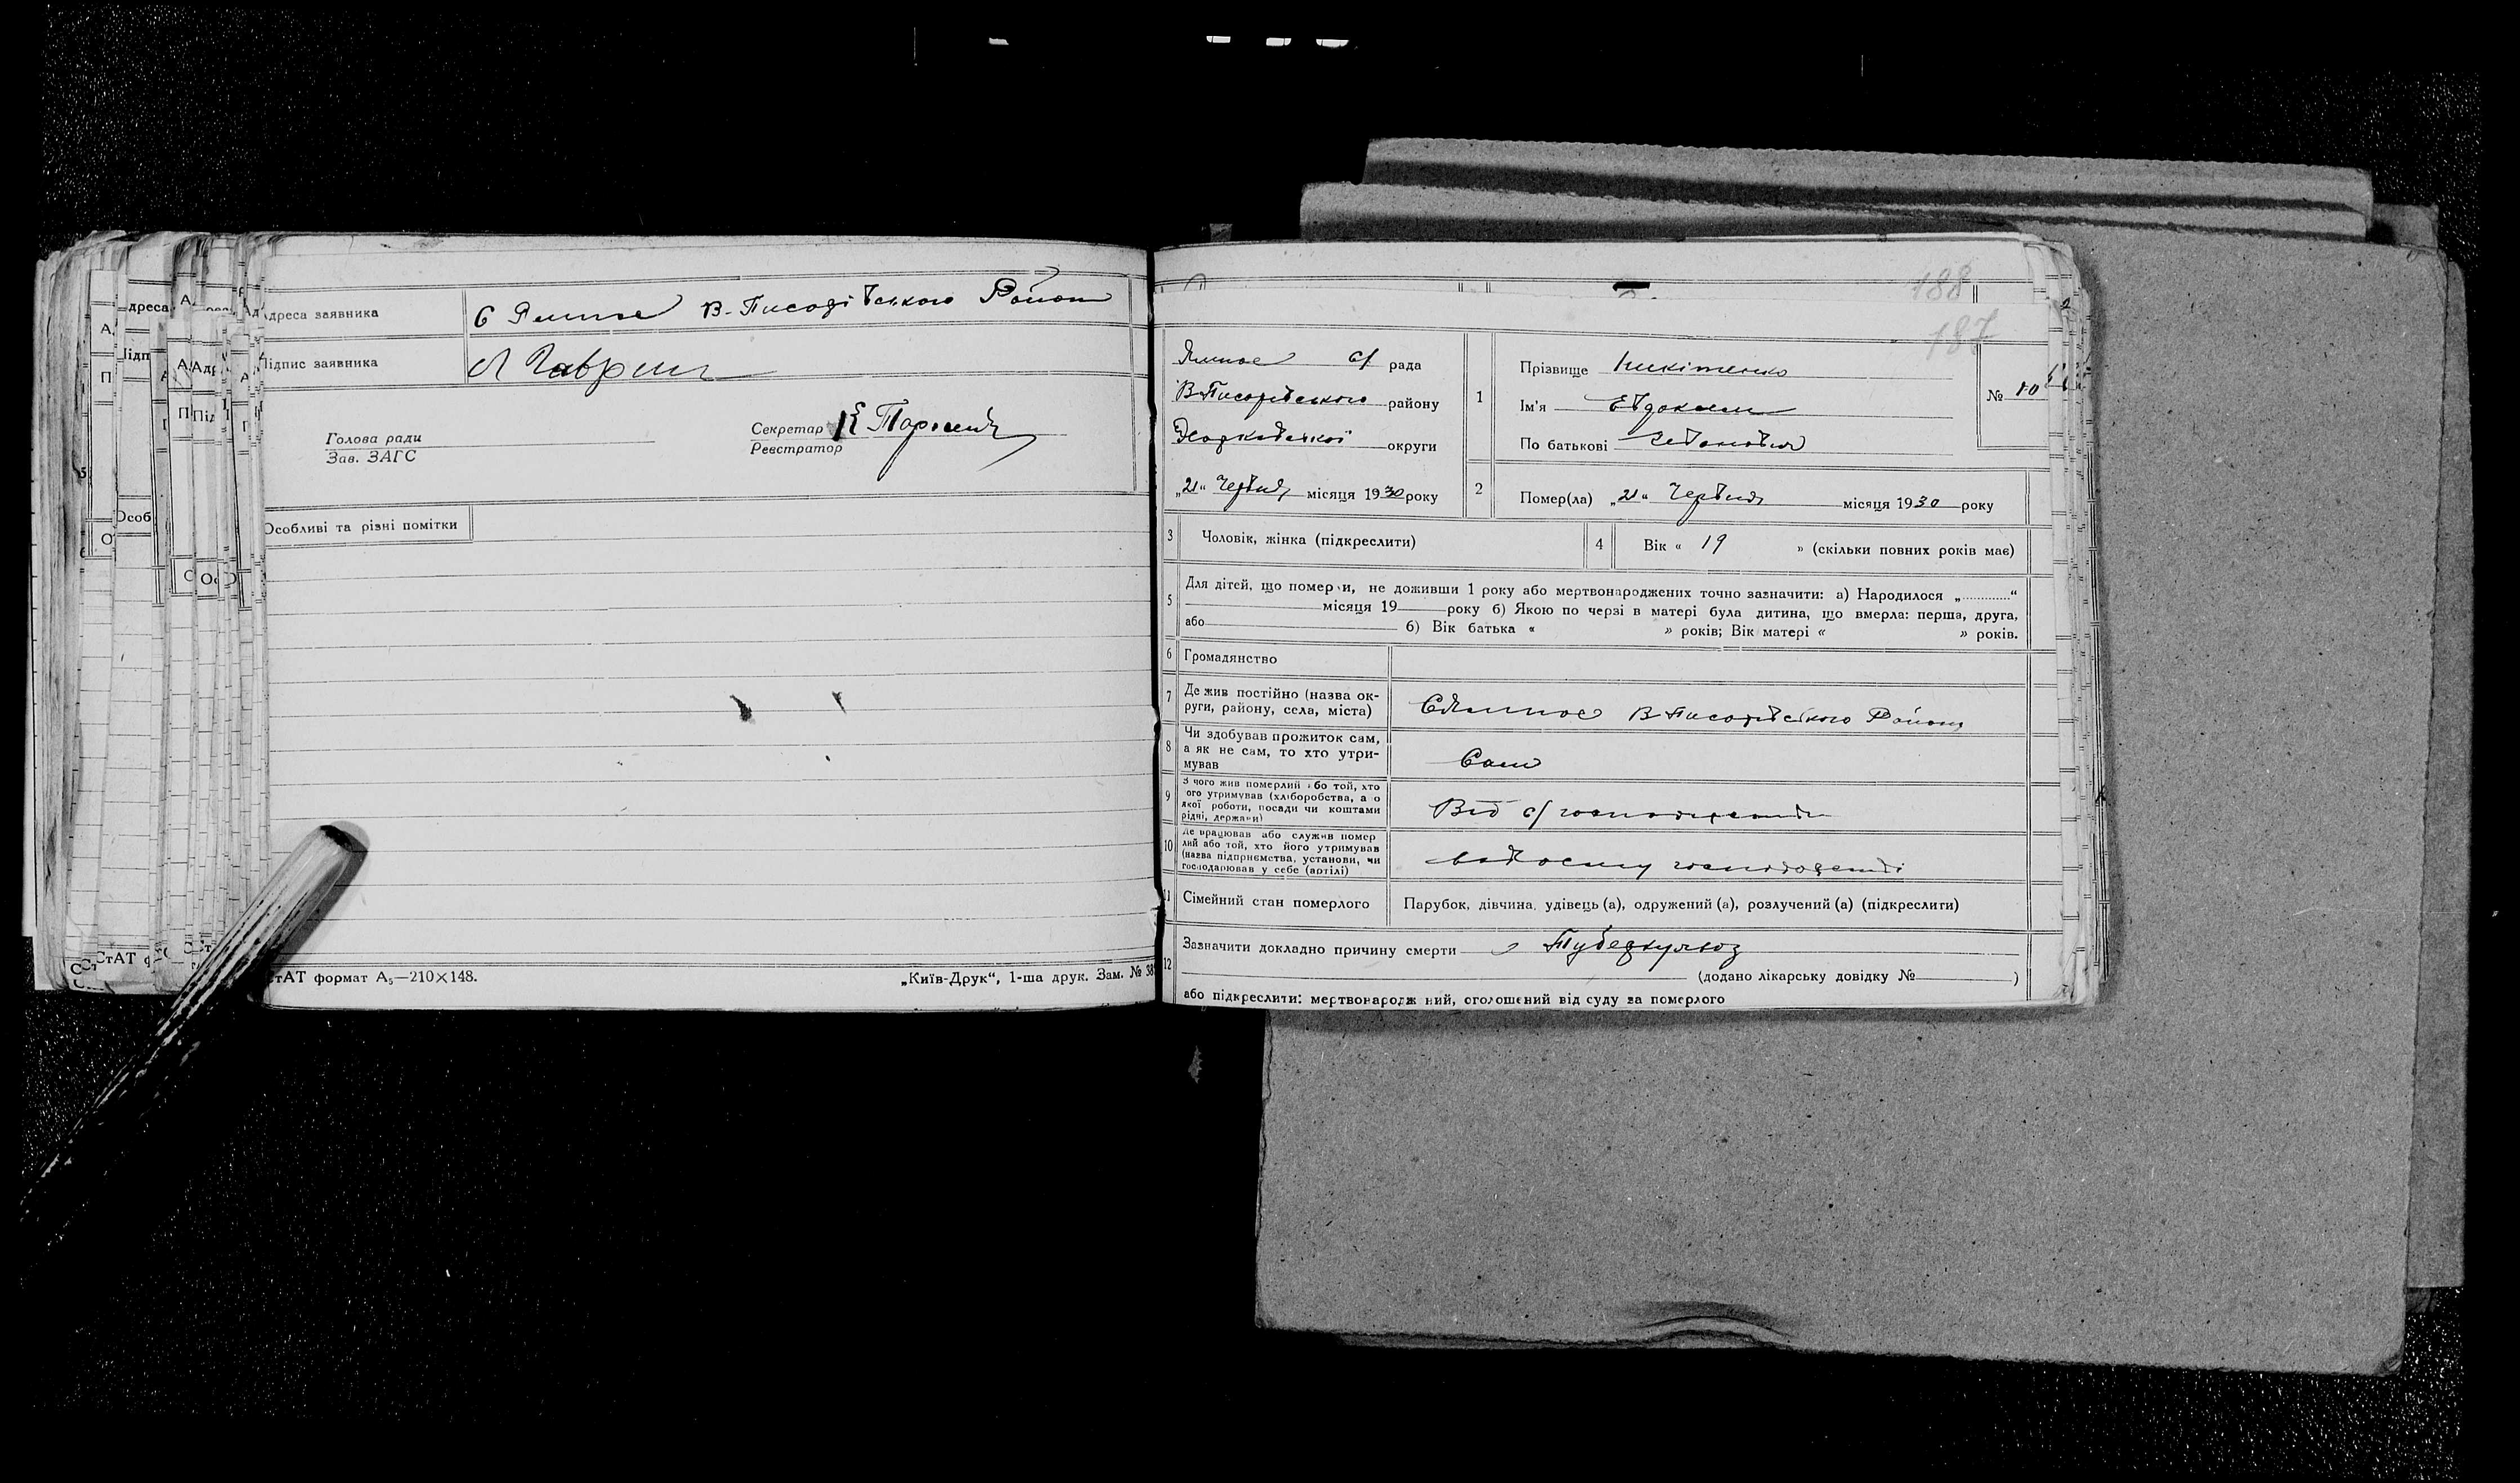 Адреса заявника
В-Писарівського Району
Підпис заявника
Л Гавриш
Секретар
Реєстратор
Голова ради
Зав. ЗАГС
Особливі та різні помітки
СтАТ формат А5—210×148.
„Київ-Друк“, 1-ша друк. Зам. № 38
188
187
Ямное с/ рада
В-Писарівського району
Харківської округи
„21“ Червня місяця 1930 року
1
Прізвище Никітенко
Ім'я Евдоким
По батькові
№ 10
2
Помер(ла) „21“ Червня місяця 1930 року
3 Чоловік, жінка (підкреслити)
4 Вік « 19 » (скільки повних років має)
5 Для дітей, що померли, не доживши 1 року або мертвонароджених точно зазначити: а) Народилося „............“
місяця 19 року б) Якою по черзі в матері була дитина, що вмерла: перша, друга,
або 6) Вік батька « » років; Вік матері « » років.
6 Громадянство
7 Де жив постійно (назва ок-
руги, району, села, міста)
С Ямное В-Писарівського Району
8 Чи здобував прожиток сам,
а як не сам, то хто утри-
мував
Сам
9 З чого жив померлий або той, хто
його утримував (хліборобства, або
якої роботи, посади чи коштами
рідні, держави)
Від с/ господарства
10 Де працював або служив помер
лий або той, хто його утримував
(назва підприємства, установи, чи
господарював у себе (артілі)
господарстві
11 Сімейний стан померлого
Парубок, дівчина, удівець (а), одружений (а), розлучений (а) (підкреслити)
12 Зазначити докладно причину смерти Туберкульоз
(додано лікарську довідку № )
або підкреслити: мертвонародж ний, оголошений від суду за померлого